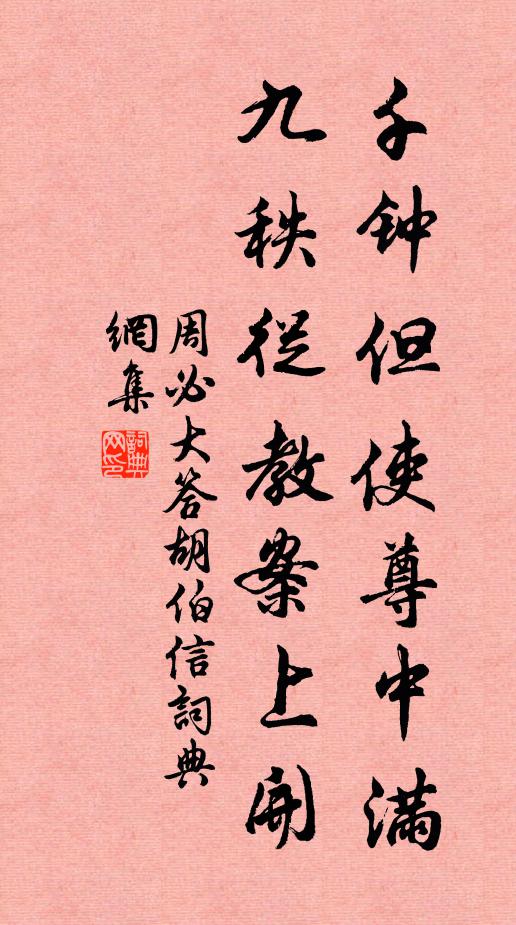 千钟但使尊中满
九秩從教案上開
周必大答胡伯信詞典
網集
詞典網印